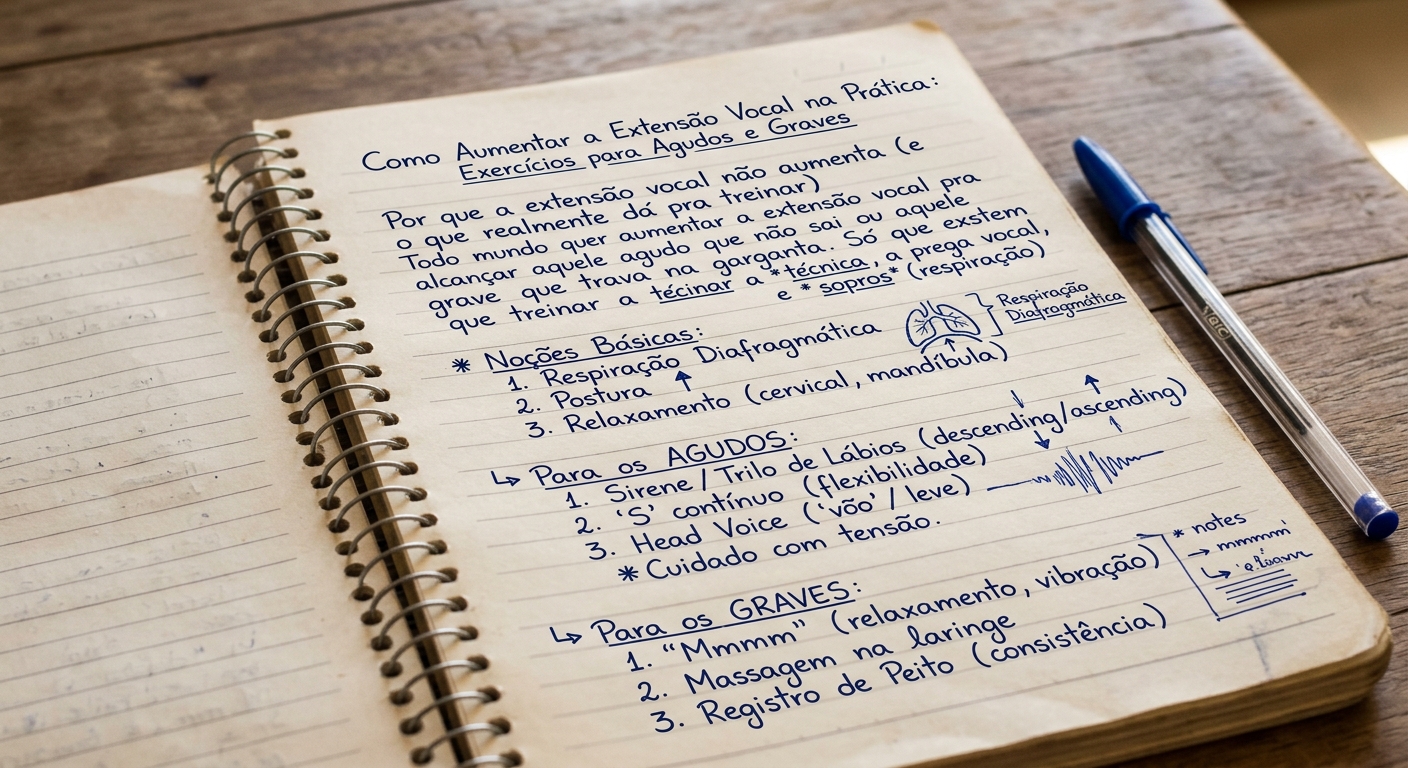 Como Aumentar a Extensão Vocal na Prática:
Exercícios para Agudos e Graves
Por que a extensão vocal não aumenta (e
o que realmente dá pra treinar)
Todo mundo quer aumentar a extensão vocal pra
alcançar aquele agudo que não sai ou aquele
grave que trava na garganta. Só que existem
que treinar a técinar a *técnica, a prega vocal,
e *sopros* (respiração)
* Noções Básicas:
1. Respiração Diafragmática
2. Postura ↑
3. Relaxamento (cervical, mandíbula)
Respiração
Diafragmática
↳ Para os AGUDOS:
1. Sirene / Trilo de Lábios (descending/ascending)
2. 'S' contínuo (flexibilidade)
3. Head Voice ('vôo' / leve)
* Cuidado com tensão.
↳ Para os GRAVES:
1. "Mmmm" (relaxamento, vibração)
2. Massagem na laringe
3. Registro de Peito (consistência)
* notes
→ mmmm'